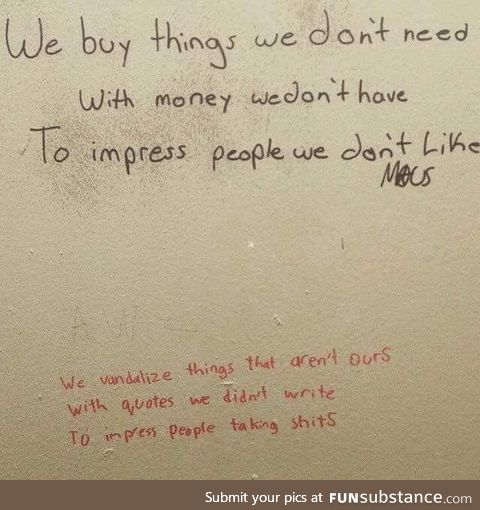 We buy things we don't need
With money we don't have
To impress people we don't Like
We vandalize things that aren't ours
With quotes we didn't write
To impress people taking shits
Submit your pics at FUNsubstance.com